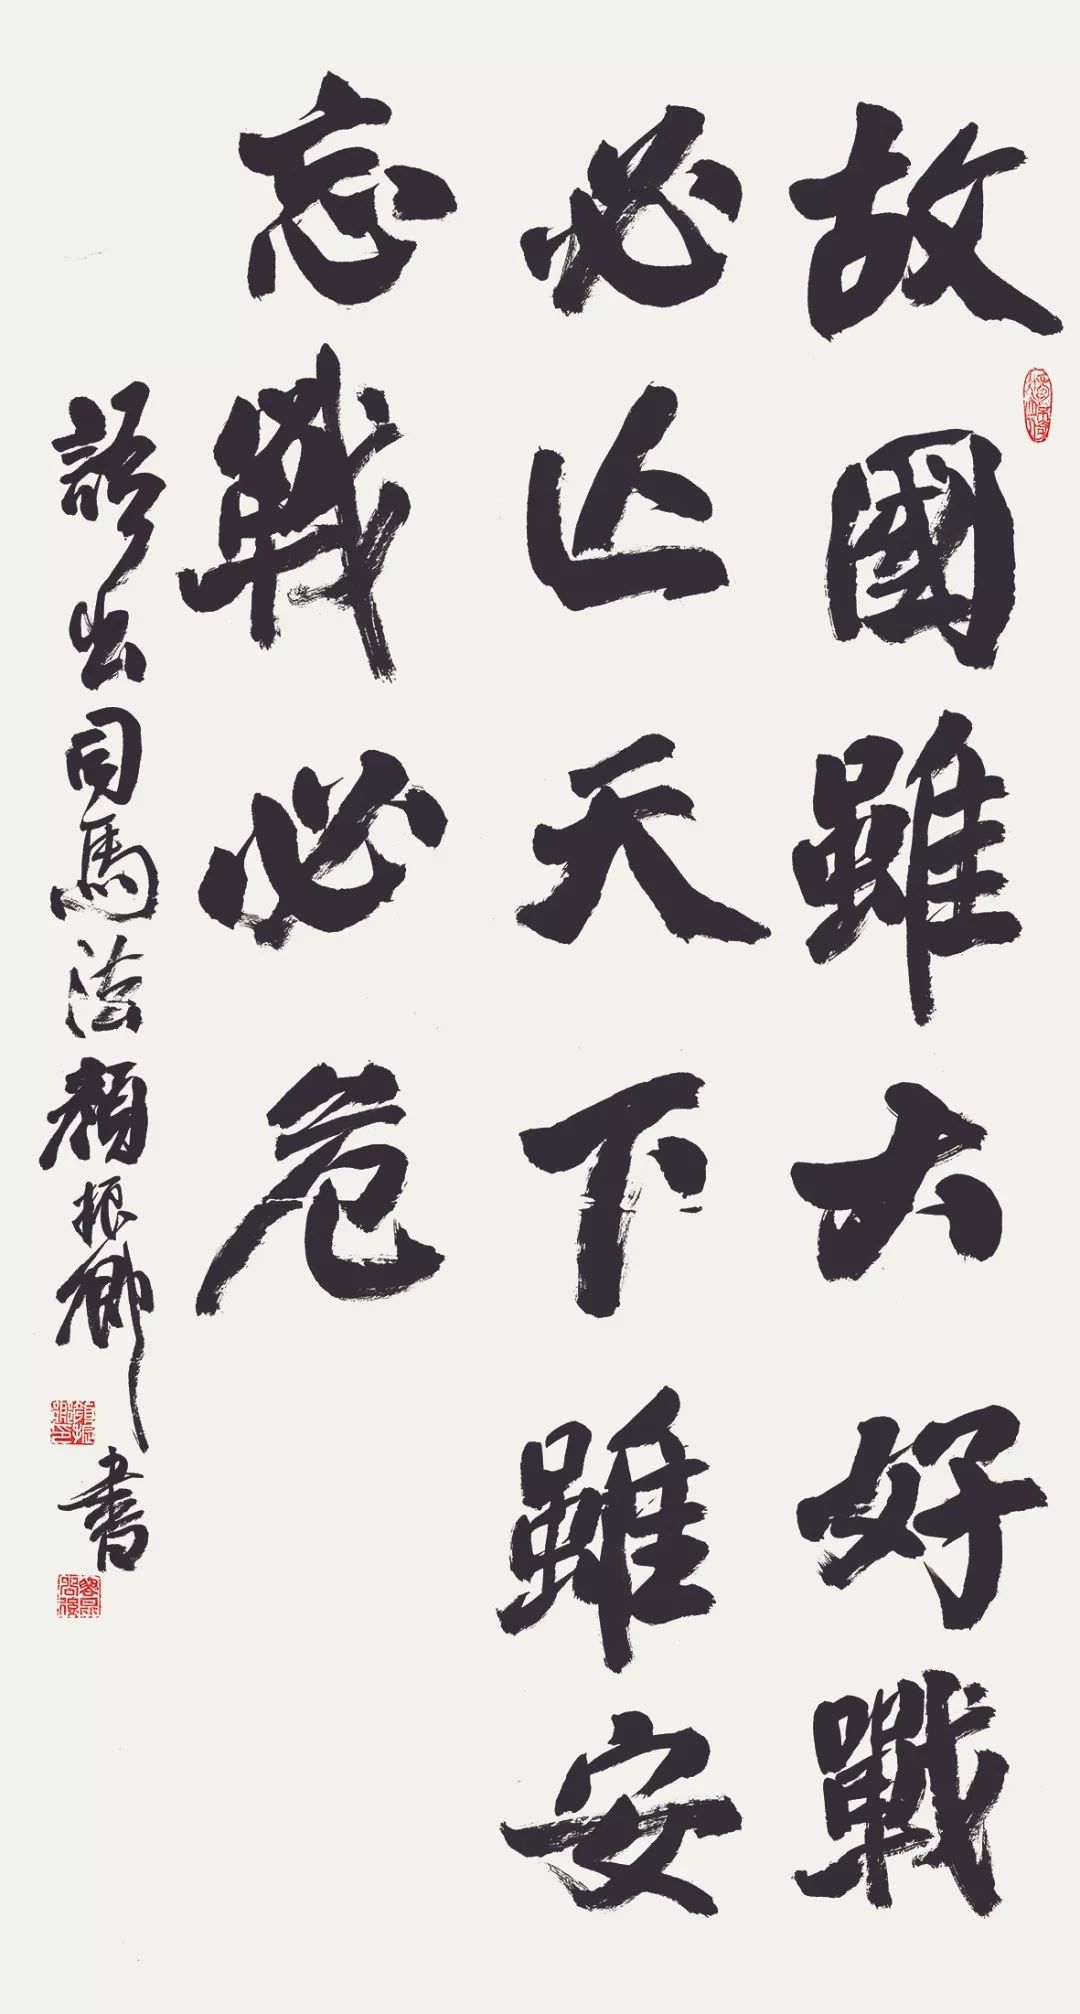 故國雖大好戰
必亾天下雖安
忘戰必危
語出司馬法顏振卿書